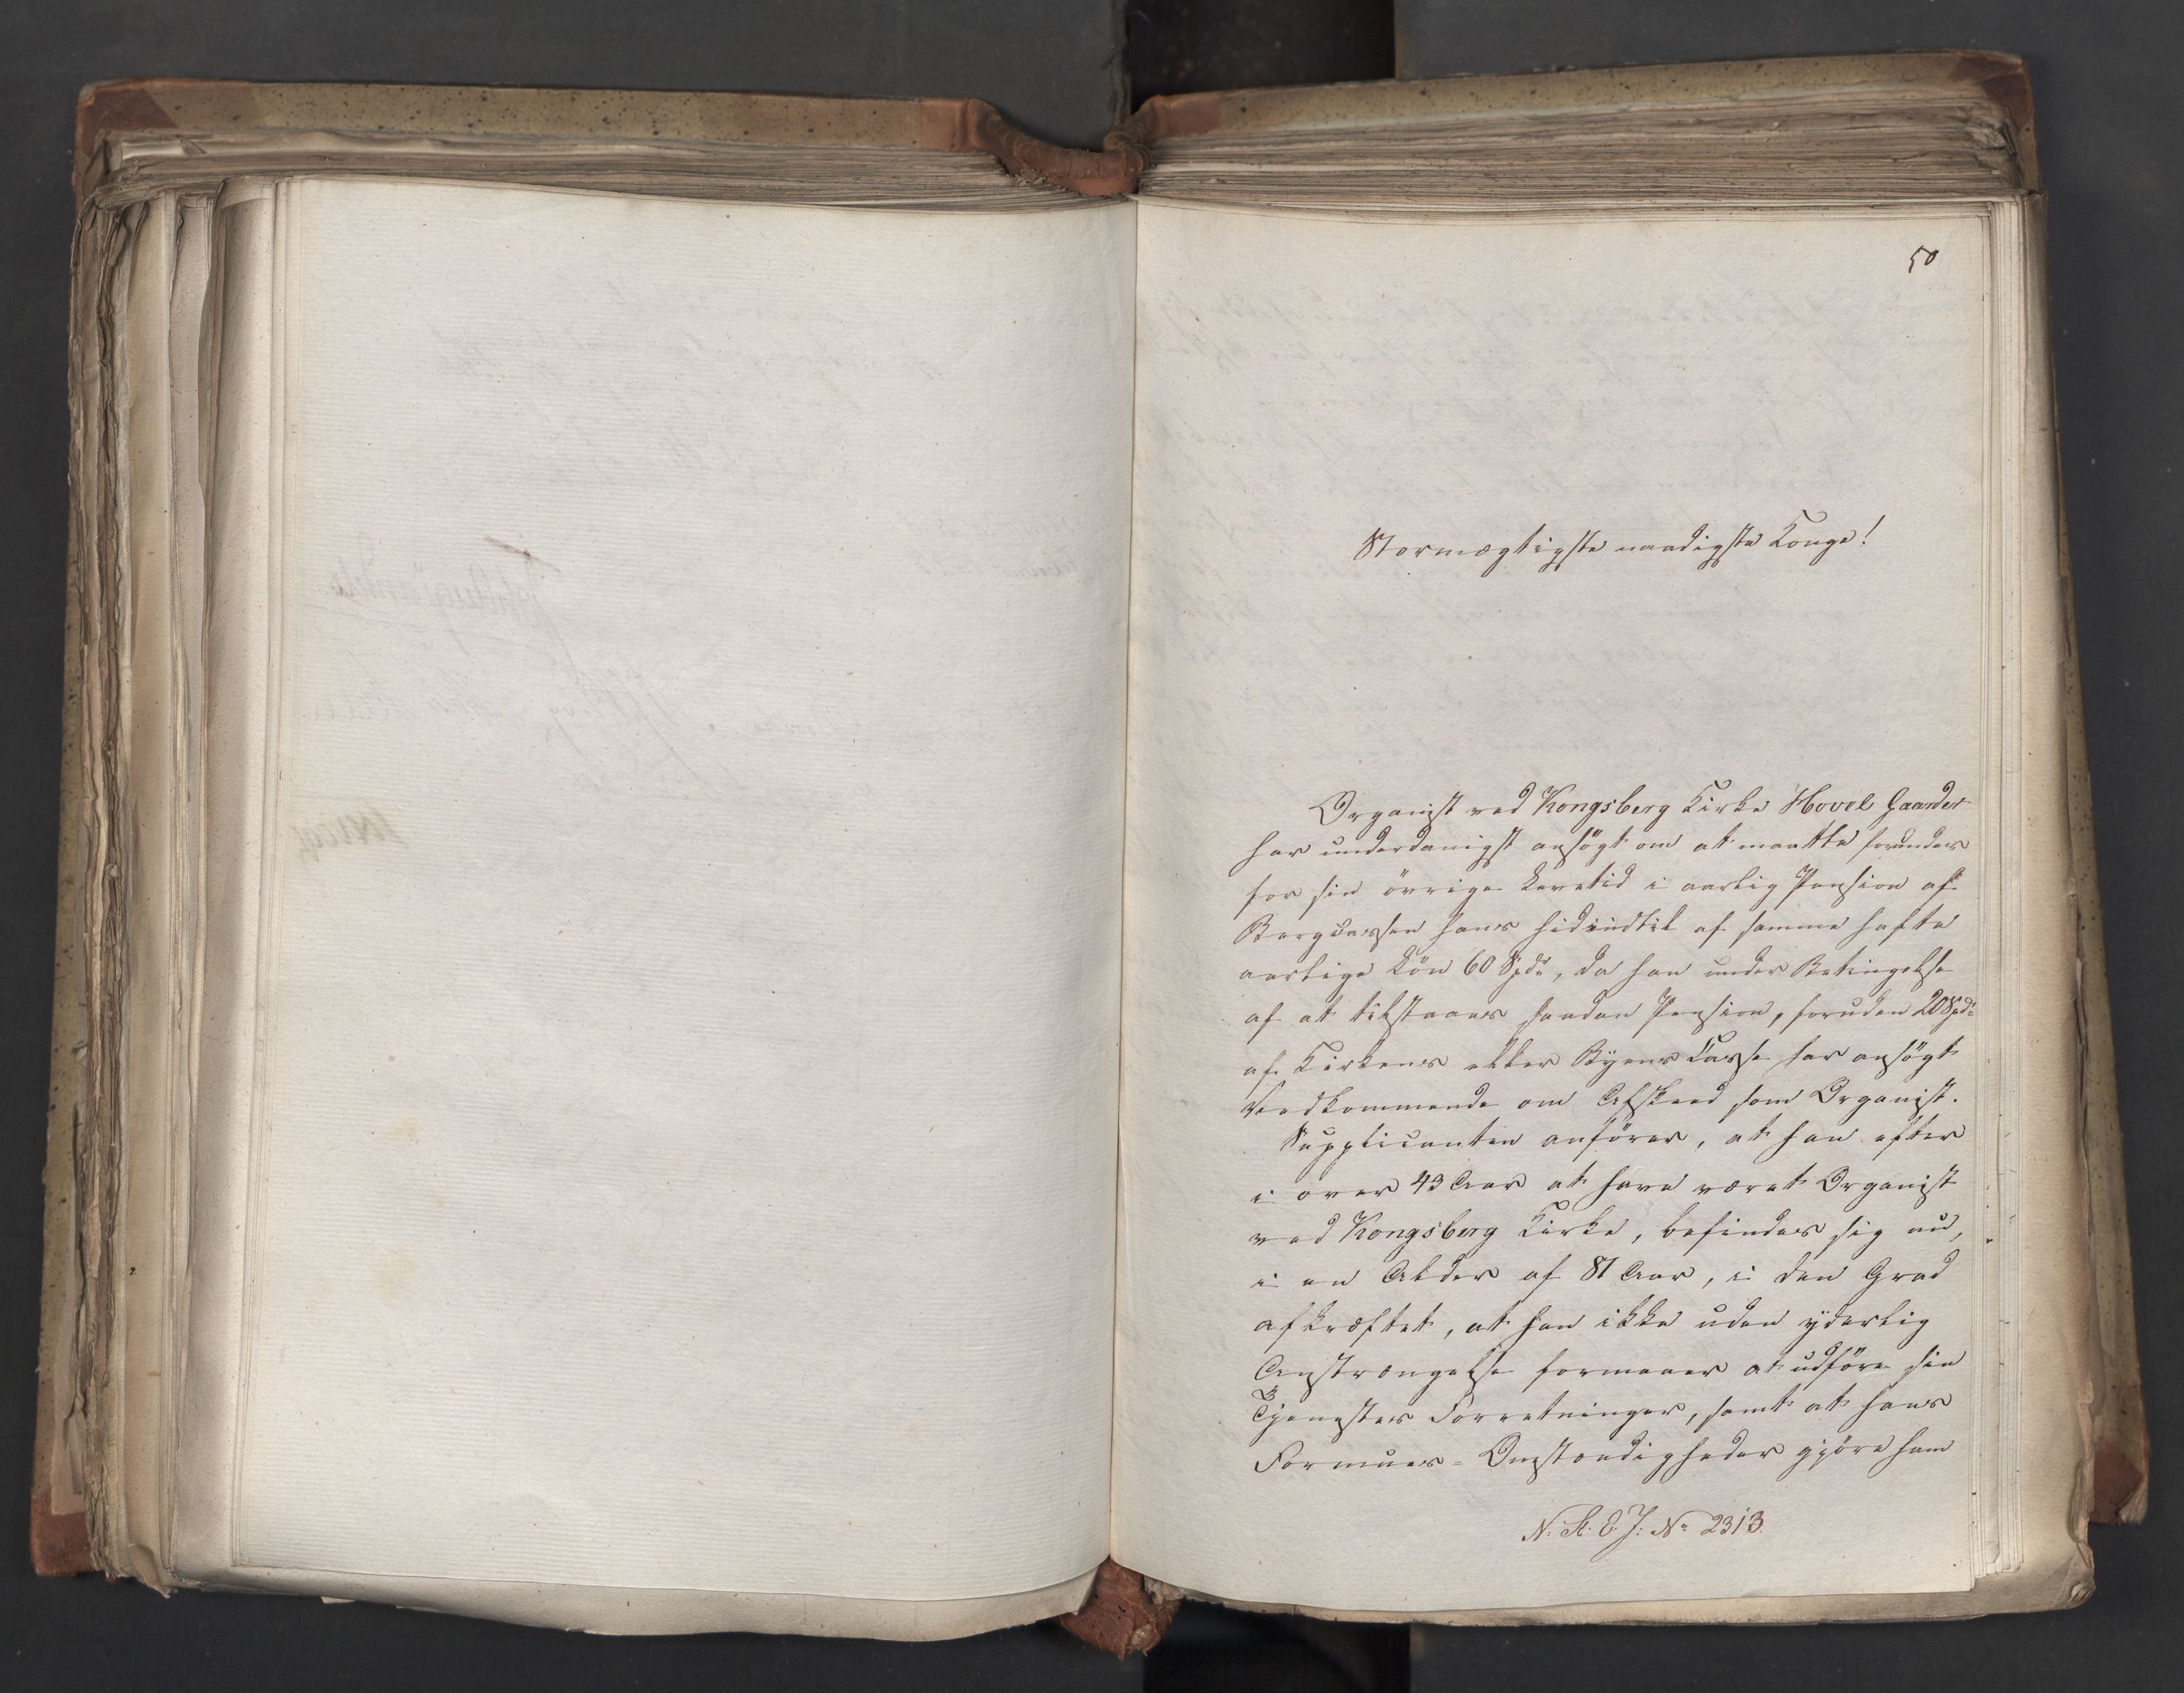 50
Stormægtigste naadigste Konge!
Organist ved Kongsberg Kirke Hovel Gaarder
har underdanigst ansøgt om at maatte forundes
for sin övrige Levetid i aarlig Pension af
Bergcassen hans hidindtil af samme hafte
aarlige Lön 60 Spd, da han under Betingelse
af at tilstaaes saadan Pension, foruden 20 Spd
af Kirkens eller Byens Casse har ansøgt
Vedkommende om Afsked som Organist.
Supplicanten anfører, at han efter
i over 43 Aar at have været Organist
ved Kongsberg Kirke, befinder sig nu,
i en Alder af 81 Aar, i den Grad
afkræftet, at han ikke uden yderlig
Anstrængelse formaaer at udföre sin
Tjenestes Forretninger, samt at hans
Formues-Omstændigheder gjöre ham
N: St: E. J: No 2313.